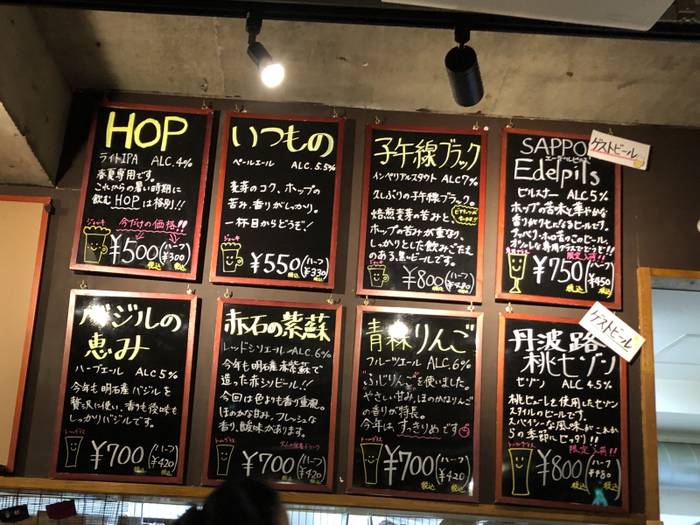 HOP
ライトIPA ALC.4%
春夏専用です。
これからの暑い時期に
飲むHOPは格別!!
今だけの価格!!
ジョッキ
¥500(ハーフ)
¥300
税込
いつもの
ペールエール ALC.5.5%
麦芽のコク、ホップの
苦み、香りがしっかり。
一杯目からどうぞ!
ジョッキ
¥550(ハーフ)
¥330
税込
子午線ブラック
インペリアルスタウト ALC7%
久しぶりの子午線ブラック。
焙煎麦芽の苦みと
ホップの苦みが重なり、
しっかりとした飲みごたえ
のある、黒ビールです。
ジョッキ
¥800(ハーフ)
¥480
税込
ゲストビール
SAPPO
Edelpils
ピルスナー ALC5%
ホップの苦味と華やかな
限定入荷!!
¥750(ハーフ)
¥450
税込
バジルの
恵み
ハーブエール ALC5%
今年も明石産バジルを
贅沢に使い、香りも後味も
しっかりバジルです。
トールグラス
¥700(ハーフ)
¥420
税込
赤石の紫蘇
レッドシソエール ALC.6%
今年も明石産赤紫蘇で
造った赤シソビール!!
今回は色よりも香り重視。
ほのかな甘み、フレッシュな
香り、酸味があります。
トールグラス
¥700(ハーフ)
¥420
税込
青森りんご
フルーツエール ALC.6%
"ふじりんご"を使いました。
やさしい甘み、ほのかなりんご
の香りが特長。
今年は、すっきりめです
トールグラス
¥700(ハーフ)
¥420
税込
ゲストビール
丹波路
桃セゾン
セゾン ALC4.5%
桃ピューレを使用したセゾン
スタイルのビールです。
スパイシーな風味がこれか
らの季節にピッタリ!!
限定入荷!!
トールグラス
¥800(ハーフ)
¥480
税込